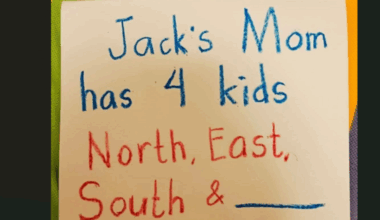 Jack's Mom
has 4 kids
North, East,
South & ____